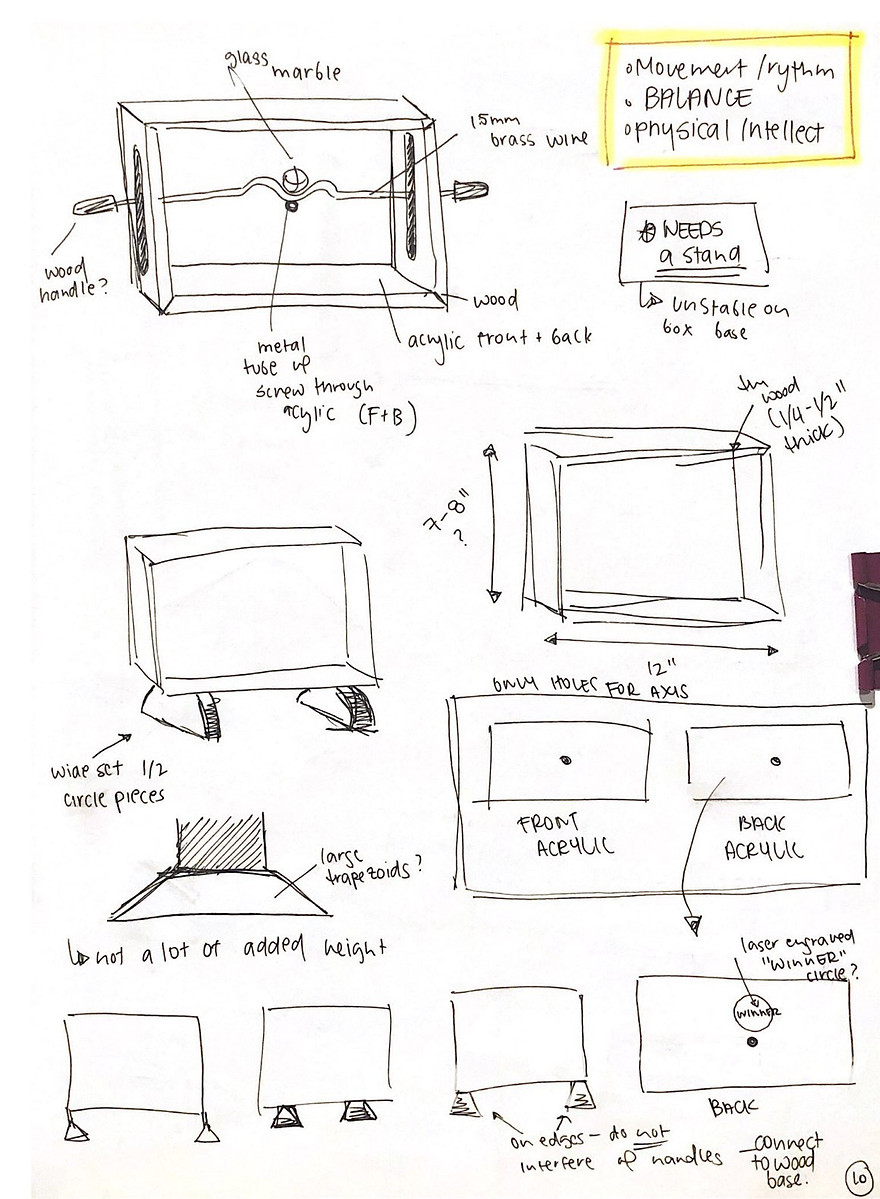 glass marble
15mm
brass wire
wood
handle?
wood
acrylic front + back
metal
tube w/
screw through
acylic (F+B)
• Movement / rythm
• BALANCE
• physical / Intellect
NEEDS
a stand
unstable on
box base
wood
(1/4-1/2"
thick)
7-8"
?
12"
wide set 1/2
circle pieces
large
trapezoids?
not a lot of added height
ONLY HOLES FOR AXIS
FRONT
ACRYLIC
BACK
ACRYLIC
laser engraved
"WINNER"
circle?
WINNER
BACK
on edges - do not
interfere w/ handles
connect
to wood
base.
10